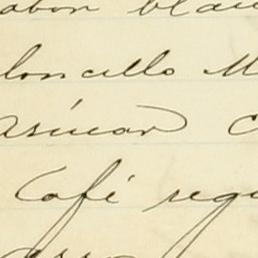 abon blan
loncillo M
asúcar C
Café regu